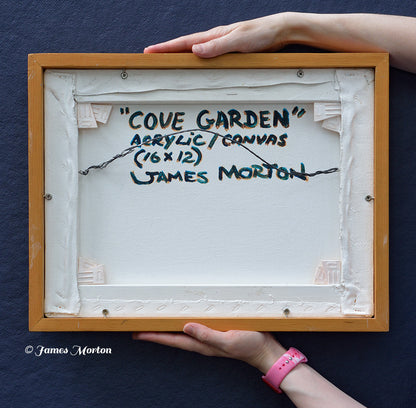 "COVE GARDEN"
ACRYLIC / CANVAS
(16 x 12)
JAMES MORTON
© James Morton